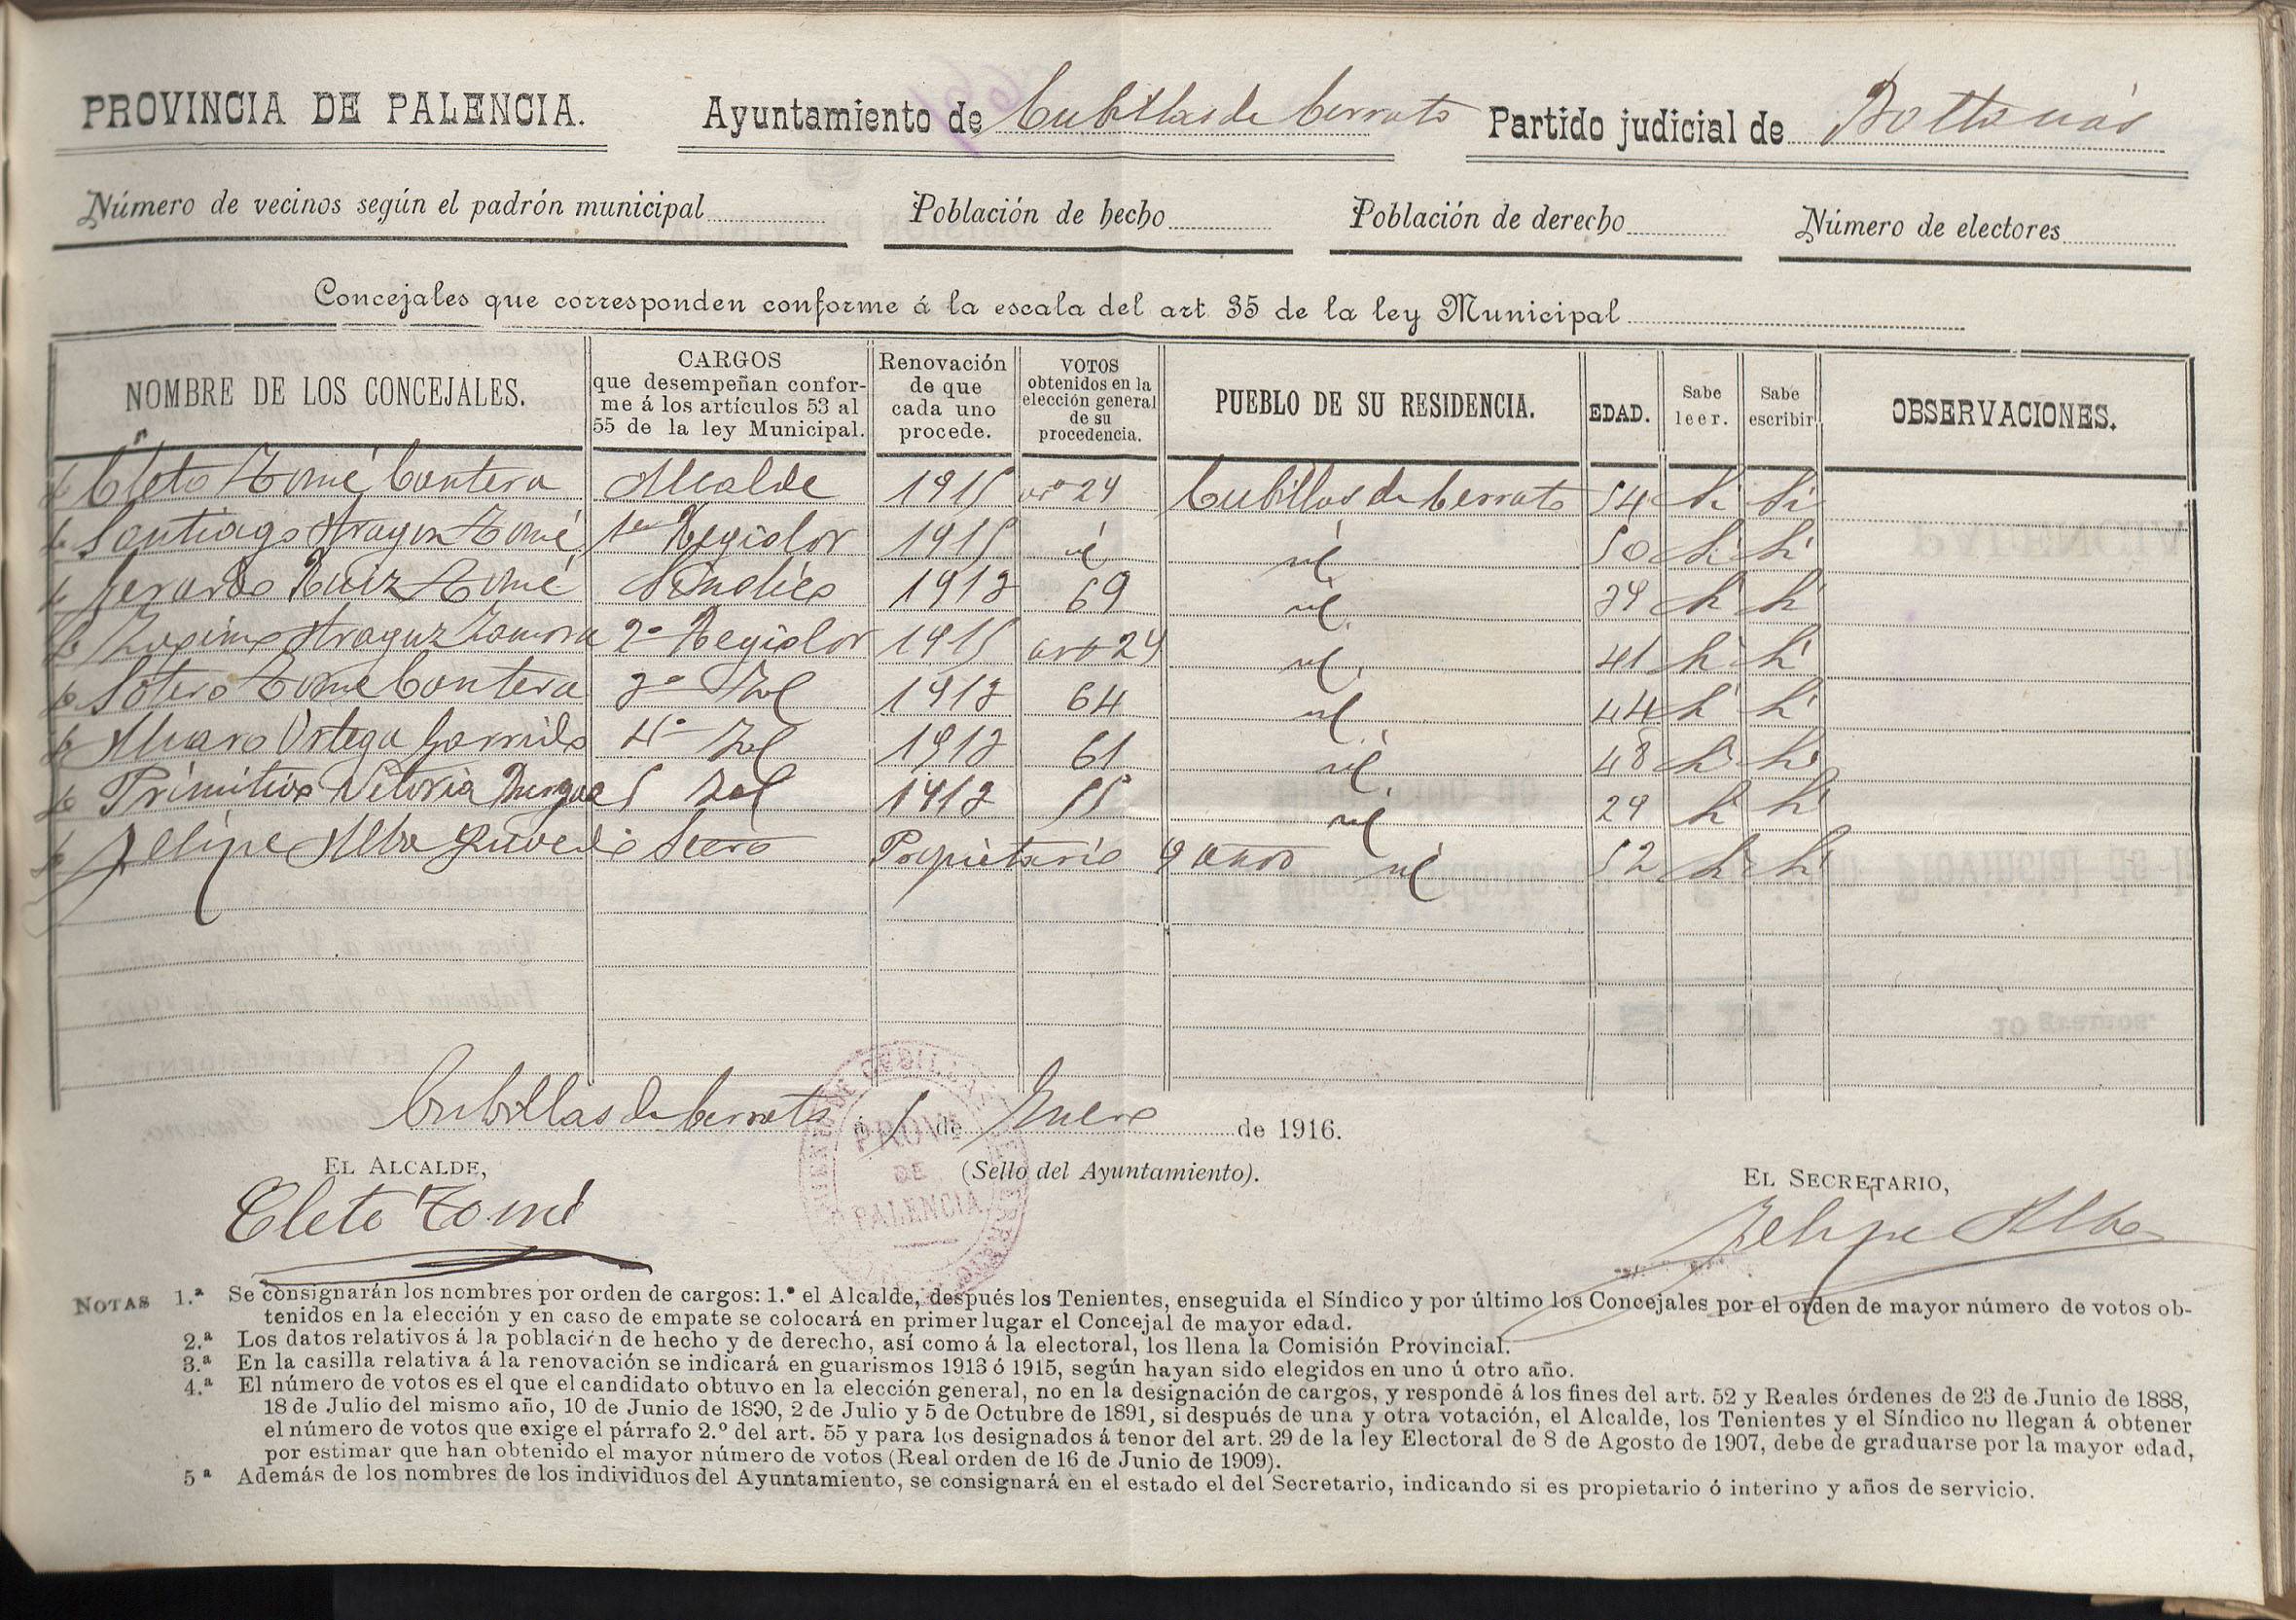 PROVINCIA DE PALENCIA. Ayuntamiento de Cubillas de Cerrato Partido judicial de Baltanás
Número de vecinos según el padrón municipal Población de hecho Población de derecho Número de electores
Concejales que corresponden conforme á la escala del art 35 de la ley Municipal
NOMBRE DE LOS CONCEJALES. CARGOS que desempeñan conforme á los artículos 53 al 55 de la ley Municipal. Renovación de que cada uno procede. VOTOS obtenidos en la elección general de su procedencia. PUEBLO DE SU RESIDENCIA. EDAD. Sabe leer. Sabe escribir OBSERVACIONES.
Cleto Tomé Cantera Alcalde 1915 arº 29 Cubillas de Cerrato 54 Si Si
Santiago Araguz Tomé 1er Regidor 1915 id id 50 Si Si
Gerardo Ruiz Tomé Síndico 1913 69 id 39 Si Si
Zosimo Araguz Zamora 2º Regidor 1915 arto 29 id 41 Si Si
Sotero Tomé Cantera 3º Id 1913 64 id 44 Si Si
Alvaro Ortega Garrido 4º Id 1913 61 id 48 Si Si
Primitivo Vitoria 5 Id 1913 55 id 29 Si Si
Felipe Alba Secro Propietario 9 años id 52 Si Si
Cubillas de Cerrato á 1 de Enero de 1916.
EL ALCALDE, (Sello del Ayuntamiento). EL SECRETARIO,
PROVª DE PALENCIA
Cleto Tomé Felipe Alba
NOTAS 1.ª Se consignarán los nombres por orden de cargos: 1.º el Alcalde, después los Tenientes, enseguida el Síndico y por último los Concejales por el orden de mayor número de votos ob-
tenidos en la elección y en caso de empate se colocará en primer lugar el Concejal de mayor edad.
2.ª Los datos relativos á la población de hecho y de derecho, así como á la electoral, los llena la Comisión Provincial.
3.ª En la casilla relativa á la renovación se indicará en guarismos 1913 ó 1915, según hayan sido elegidos en uno ú otro año.
4.ª El número de votos es el que el candidato obtuvo en la elección general, no en la designación de cargos, y responde á los fines del art. 52 y Reales órdenes de 23 de Junio de 1888,
18 de Julio del mismo año, 10 de Junio de 1890, 2 de Julio y 5 de Octubre de 1891, si después de una y otra votación, el Alcalde, los Tenientes y el Síndico no llegan á obtener
el número de votos que exige el párrafo 2.º del art. 55 y para los designados á tenor del art. 29 de la ley Electoral de 8 de Agosto de 1907, debe de graduarse por la mayor edad,
por estimar que han obtenido el mayor número de votos (Real orden de 16 de Junio de 1909).
5ª Además de los nombres de los individuos del Ayuntamiento, se consignará en el estado el del Secretario, indicando si es propietario ó interino y años de servicio.